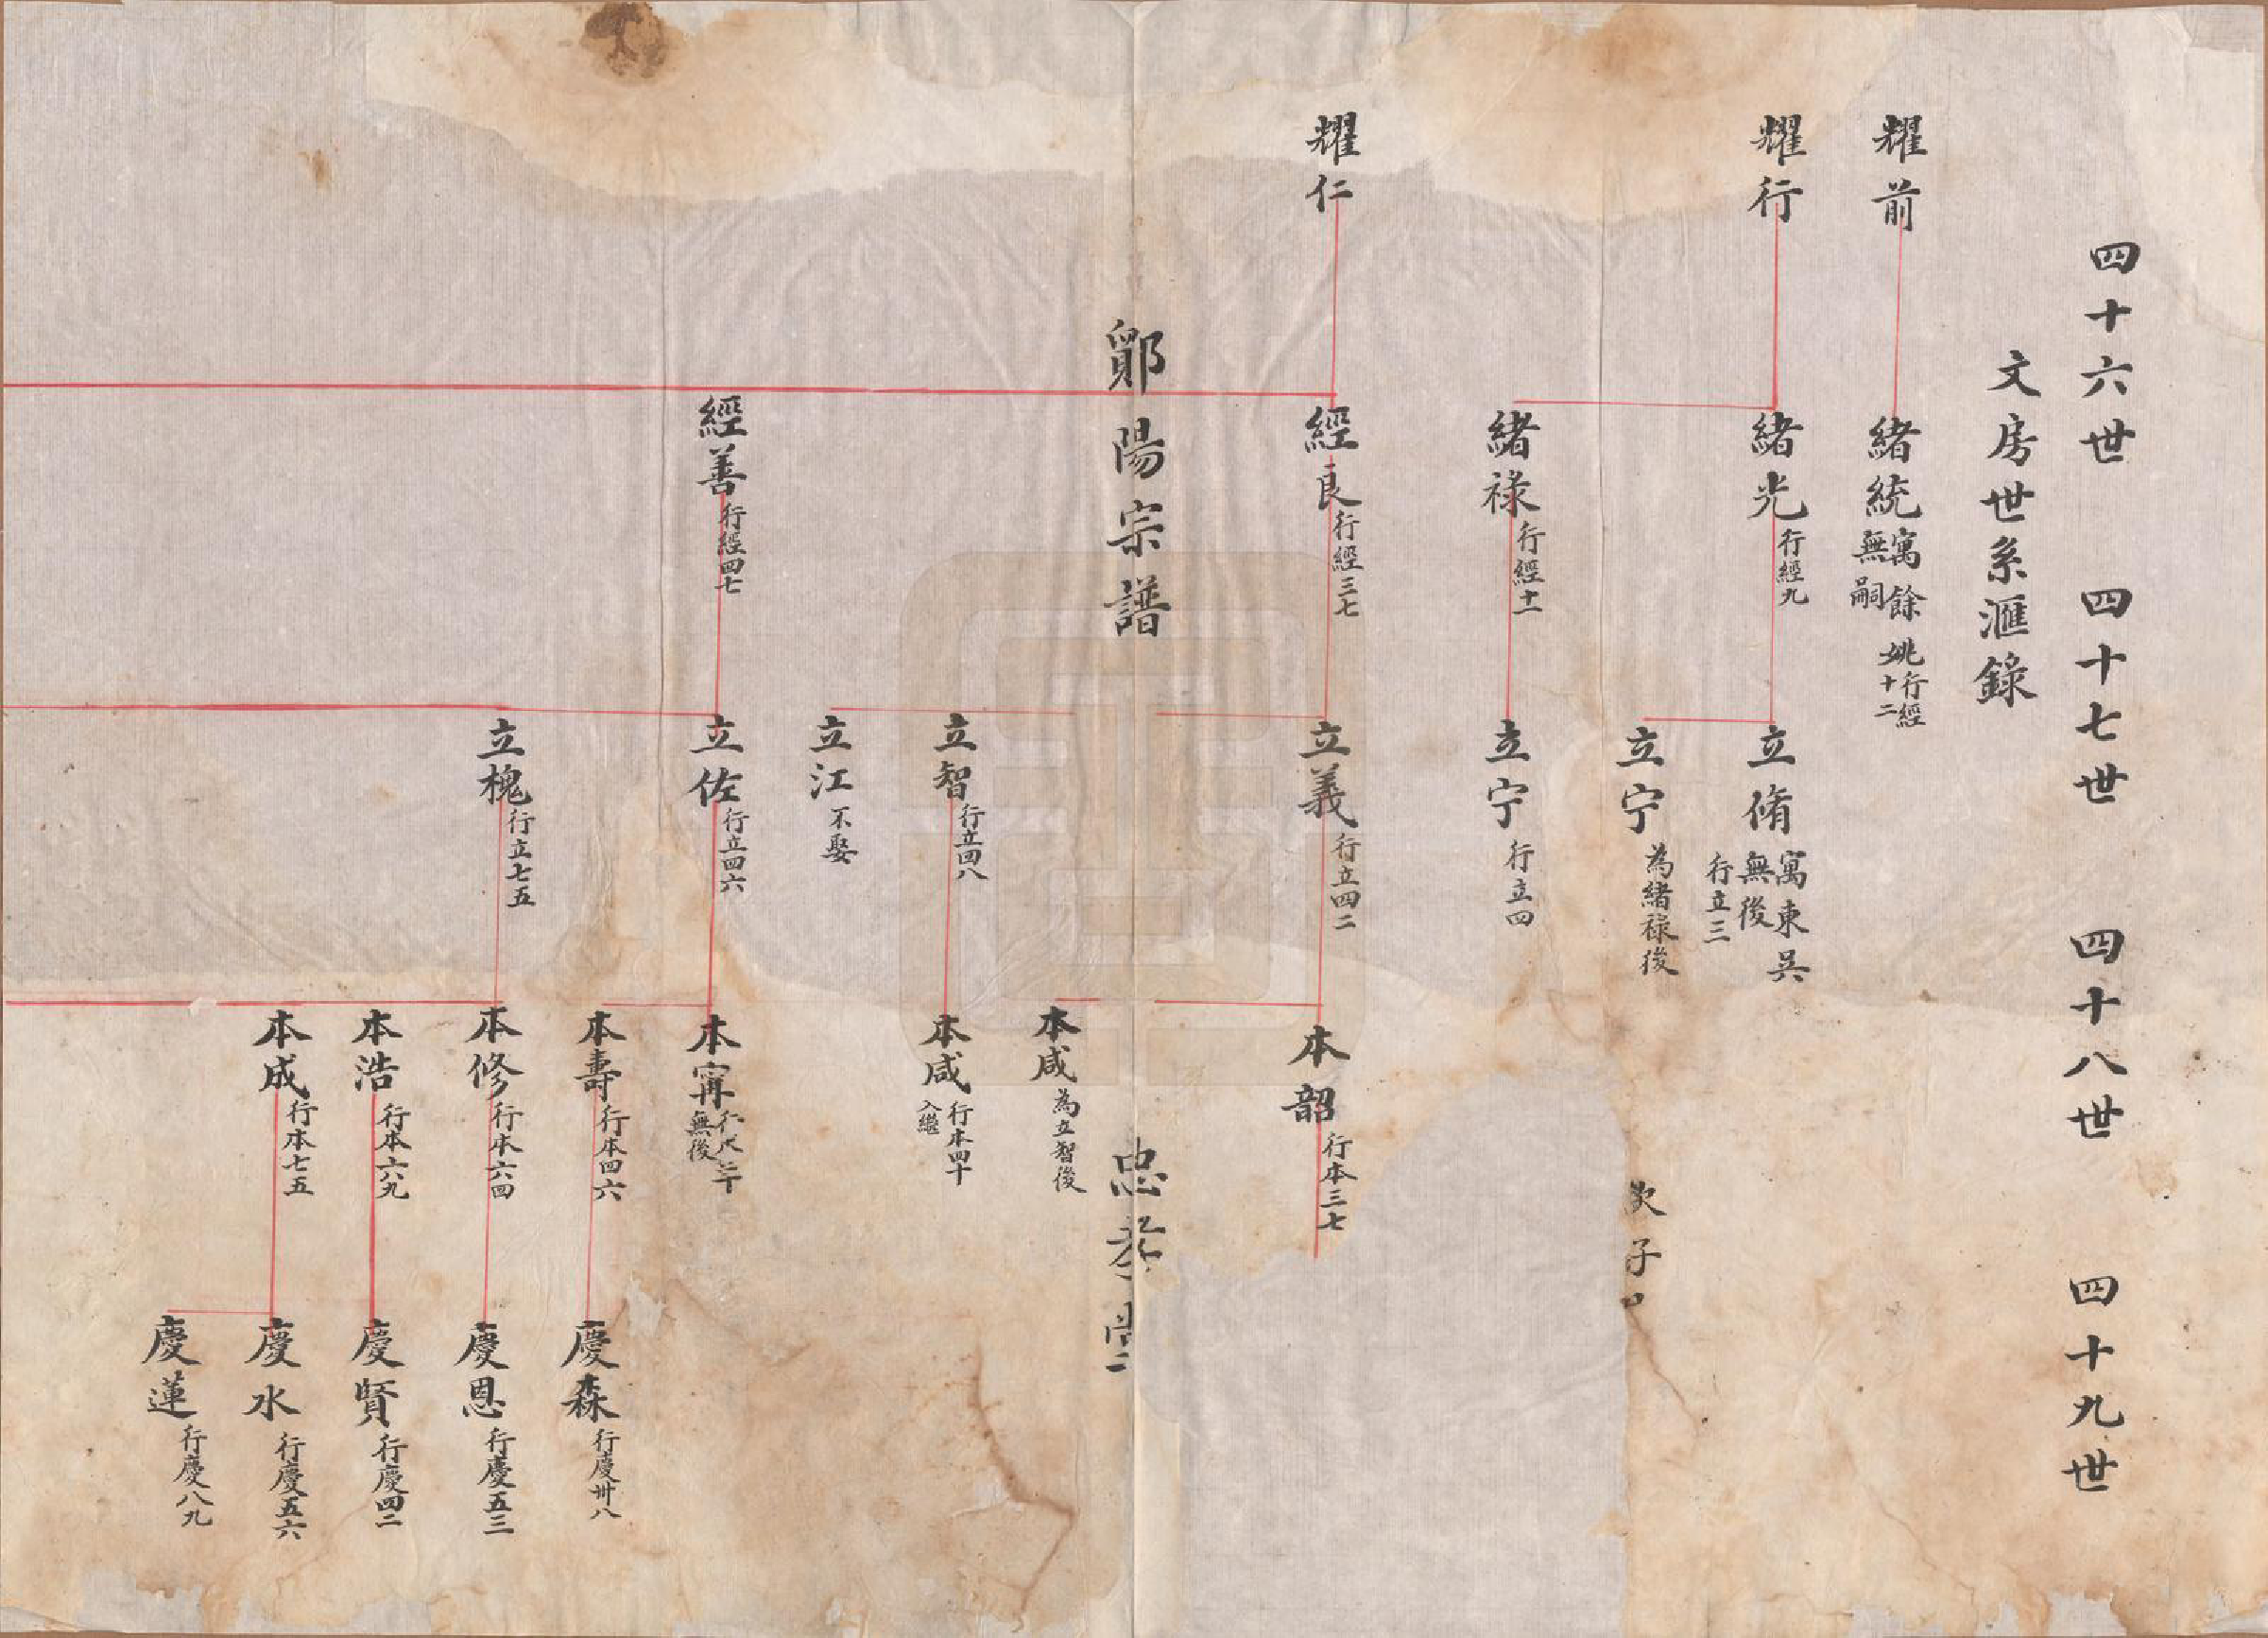 四十六世 四十七世 四十八世 四十九世
文房世系滙錄
耀前
緒統 寓餘姚 無嗣 行經十二
耀行
緒光 行經九
立脩 寓東吳 無後 行立三
立宁 為緒祿後
次子
緒祿 行經十一
立宁 行立四
耀仁
經良 行經三七
立義 行立四二
本韶 行本三七
鄖陽宗譜 忠孝堂
本咸 為立智後
立智 行立四八
本咸 行本四十 入繼
立江 不娶
經善 行經四七
立佐 行立四六
本寗 無後
本壽 行本四六
慶森 行慶卅八
立槐 行立七五
本修 行本六四
慶恩 行慶五三
本浩 行本六九
慶賢 行慶四二
本成 行本七五
慶水 行慶五六
慶蓮 行慶八九